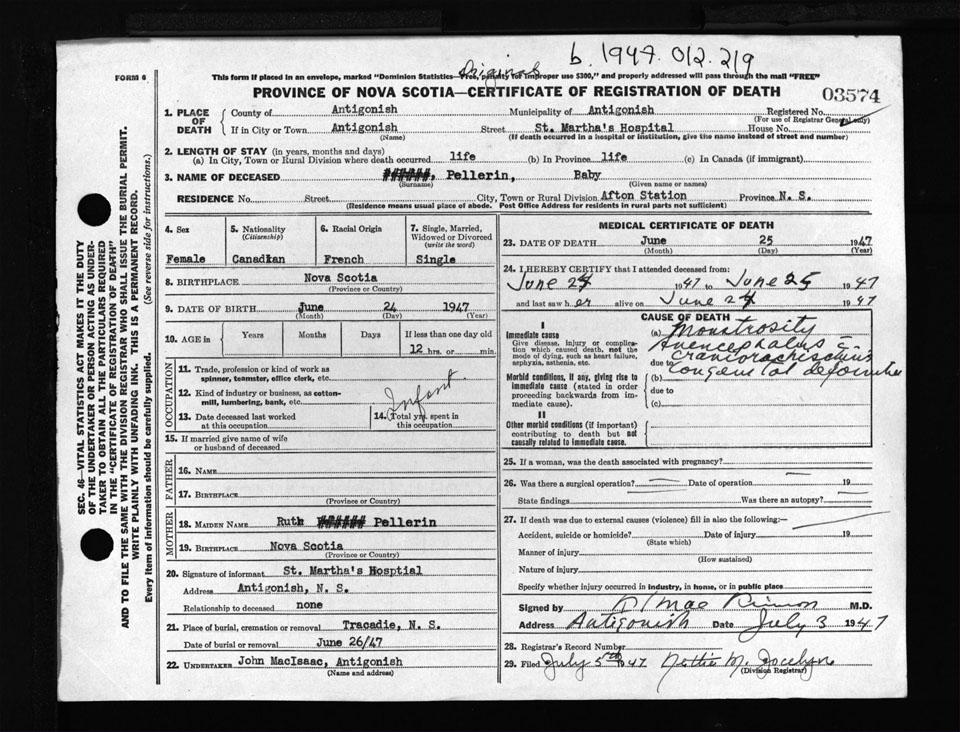 b. 1947. 012219
Original
FORM 6
This form if placed in an envelope, marked "Dominion Statistics—Free, penalty for improper use $300," and properly addressed will pass through the mail "FREE"
PROVINCE OF NOVA SCOTIA—CERTIFICATE OF REGISTRATION OF DEATH
03574
1. PLACE OF DEATH
County of Antigonish Municipality of Antigonish Registered No.
(For use of Registrar General only)
If in City or Town Antigonish Street St. Martha's Hospital House No.
(Name) (If death occurred in a hospital or institution, give the name instead of street and number)
2. LENGTH OF STAY (in years, months and days)
(a) In City, Town or Rural Division where death occurred life (b) In Province life (c) In Canada (if immigrant)
3. NAME OF DECEASED Pellerin, Baby
(Surname) (Given name or names)
RESIDENCE No. Street City, Town or Rural Division Afton Station Province N. S.
(Residence means usual place of abode. Post Office Address for residents in rural parts not sufficient)
4. Sex
Female
5. Nationality
(Citizenship)
Canadian
6. Racial Origin
French
7. Single, Married,
Widowed or Divorced
(write the word)
Single
8. BIRTHPLACE Nova Scotia
(Province or Country)
9. DATE OF BIRTH June 24 1947
(Month) (Day) (Year)
10. AGE in Years Months Days If less than one day old
12 hrs. or min.
OCCUPATION
11. Trade, profession or kind of work as
spinner, teamster, office clerk, etc.
12. Kind of industry or business, as cotton-
mill, lumbering, bank, etc.
Infant.
13. Date deceased last worked
at this occupation
14. Total yrs. spent in
this occupation
15. If married give name of wife
or husband of deceased
FATHER
16. NAME
17. BIRTHPLACE
(Province or Country)
MOTHER
18. MAIDEN NAME Ruth Pellerin
19. BIRTHPLACE Nova Scotia
(Province or Country)
20. Signature of informant St. Martha's Hosptial
Address Antigonish, N. S.
Relationship to deceased none
21. Place of burial, cremation or removal Tracadie, N. S.
Date of burial or removal June 26/47
22. UNDERTAKER John MacIsaac, Antigonish
(Name and address)
MEDICAL CERTIFICATE OF DEATH
23. DATE OF DEATH June 25 1947
(Month) (Day) (Year)
24. I HEREBY CERTIFY that I attended deceased from:
June 24 1947 to June 25 1947
and last saw h er alive on June 24 1947
CAUSE OF DEATH
I
Immediate cause
Give disease, injury or complica-
tion which caused death, not the
mode of dying, such as heart failure,
asphyxia, asthenia, etc.
(a) Monstrosity
Anencephalus c̄
due to craniorachischisis
Morbid conditions, if any, giving rise to
immediate cause (stated in order
proceeding backwards from im-
mediate cause).
(b) congenital deformities
due to
(c)
II
Other morbid conditions (if important)
contributing to death but not
causally related to immediate cause.
25. If a woman, was the death associated with pregnancy?
26. Was there a surgical operation? Date of operation 19
State findings Was there an autopsy?
27. If death was due to external causes (violence) fill in also the following:—
Accident, suicide or homicide? Date of injury 19
(State which)
Manner of injury
(How sustained)
Nature of injury
Specify whether injury occurred in industry, in home, or in public place
Signed by M.D.
Address Antigonish Date July 3 1947
28. Registrar's Record Number
29. Filed July 5th 1947. Nettie M. Jocelyn
(Division Registrar)
SEC. 46—VITAL STATISTICS ACT MAKES IT THE DUTY
OF THE UNDERTAKER OR PERSON ACTING AS UNDER-
TAKER TO OBTAIN ALL THE PARTICULARS REQUIRED
IN THE "CERTIFICATE OF REGISTRATION OF DEATH"
AND TO FILE THE SAME WITH THE DIVISION REGISTRAR WHO SHALL ISSUE THE BURIAL PERMIT.
WRITE PLAINLY WITH UNFADING INK. THIS IS A PERMANENT RECORD.
Every item of information should be carefully supplied. (See reverse side for instructions.)